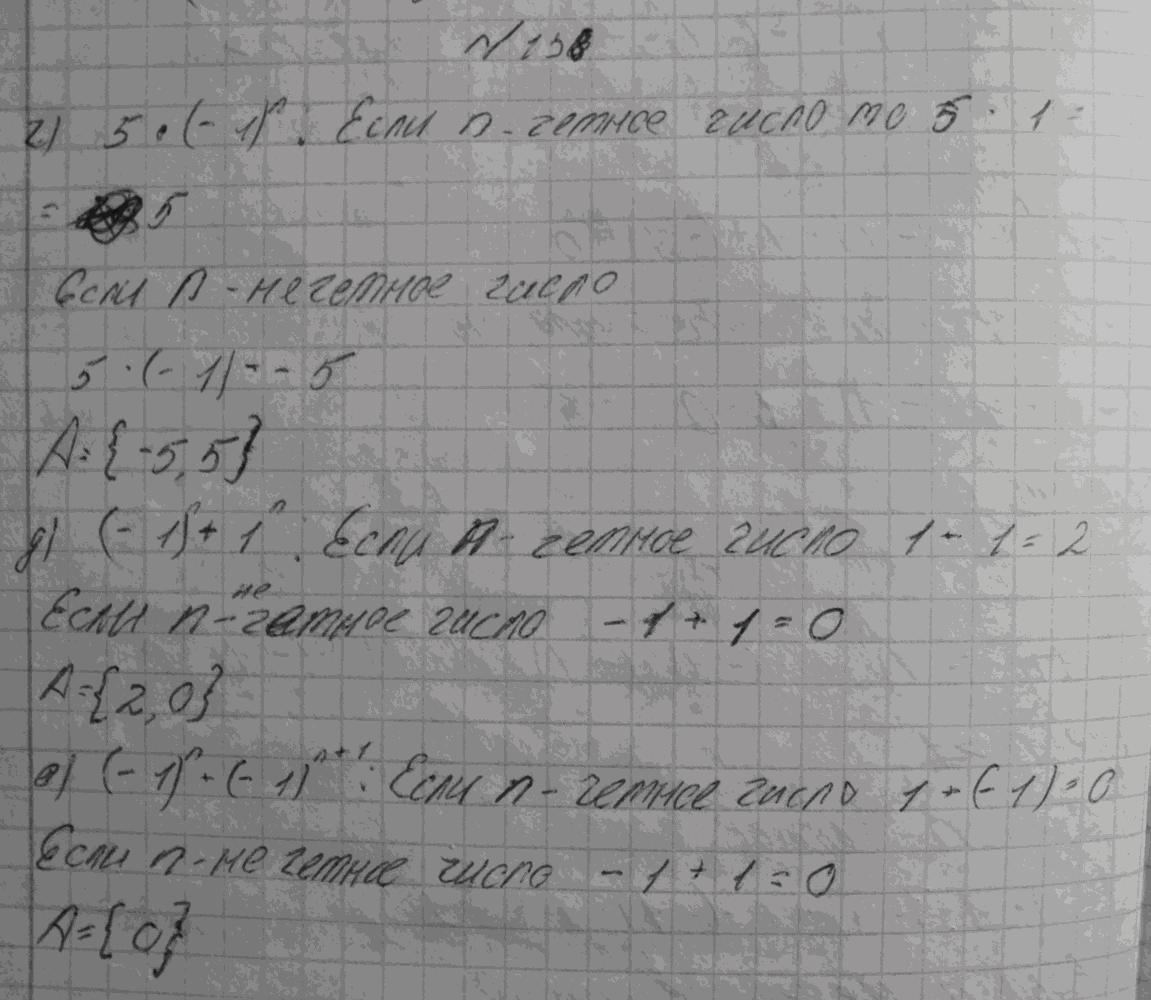 №158
г) 5 · (- 1)ⁿ : Если n - четное число то 5 · 1 =
= 5
Если n - нечетное число
5 · (- 1) = - 5
A = {-5, 5}
д) (- 1)ⁿ + 1ⁿ : Если n - четное число 1 + 1 = 2
Если n - нечетное число - 1 + 1 = 0
A = {2, 0}
е) (- 1)ⁿ + (- 1)ⁿ⁺¹ : Если n - четное число 1 + (- 1) = 0
Если n - нечетное число - 1 + 1 = 0
A = {0}